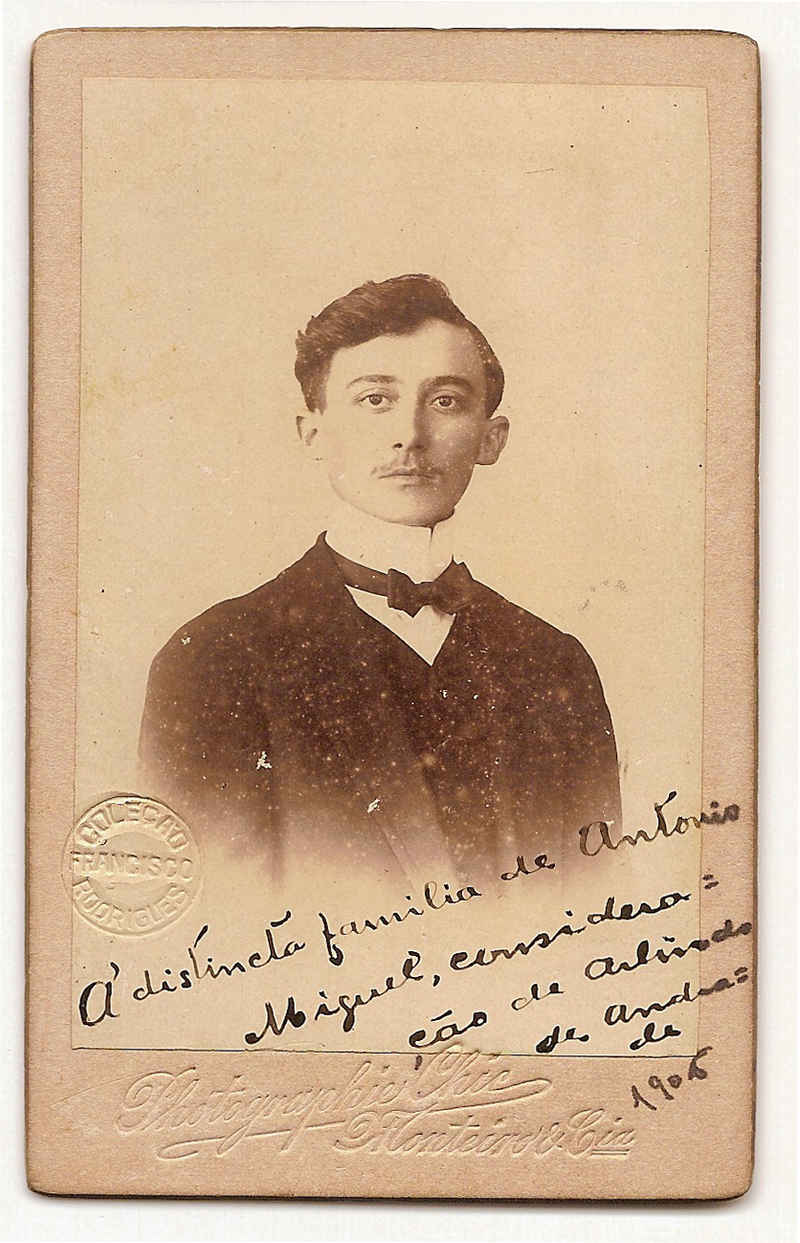 COLEÇÃO
FRANCISCO
RODRIGUES
Á distincta familia de Antonio
Miguel, considera=
ção de Arlindo
de Andra=
de
1906
Photographie Chic
Monteiro & Cia